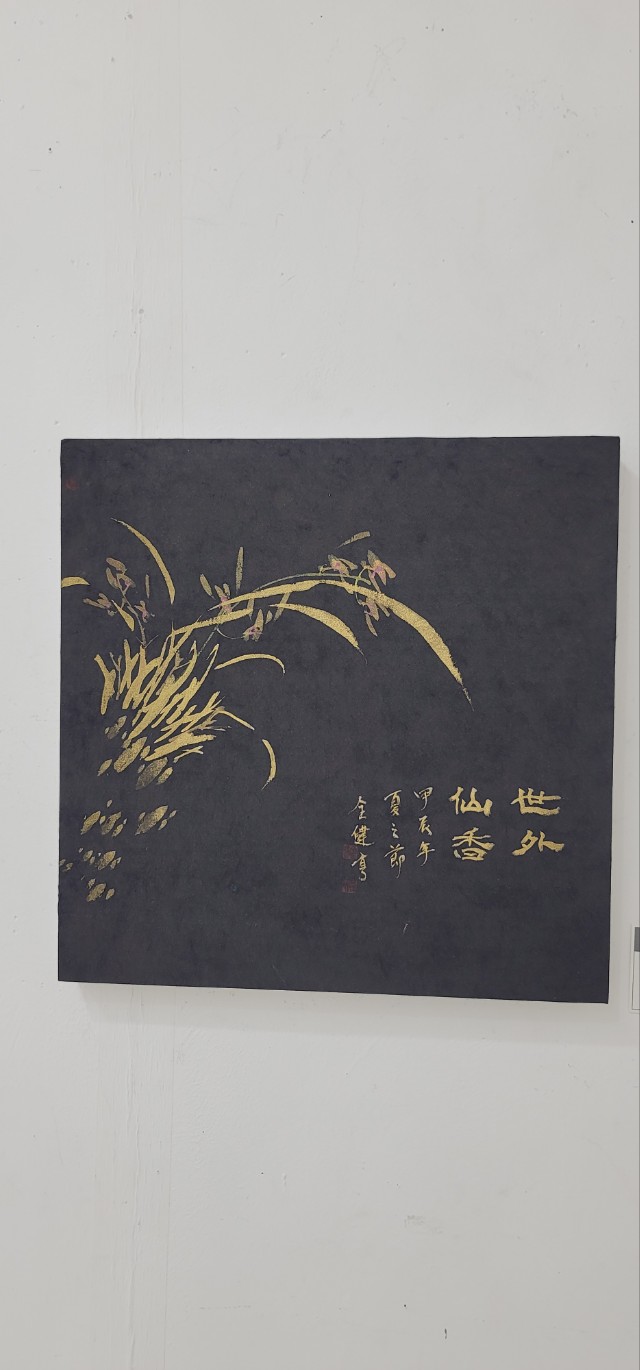 世外
仙香
甲辰年
夏之節
全健亨